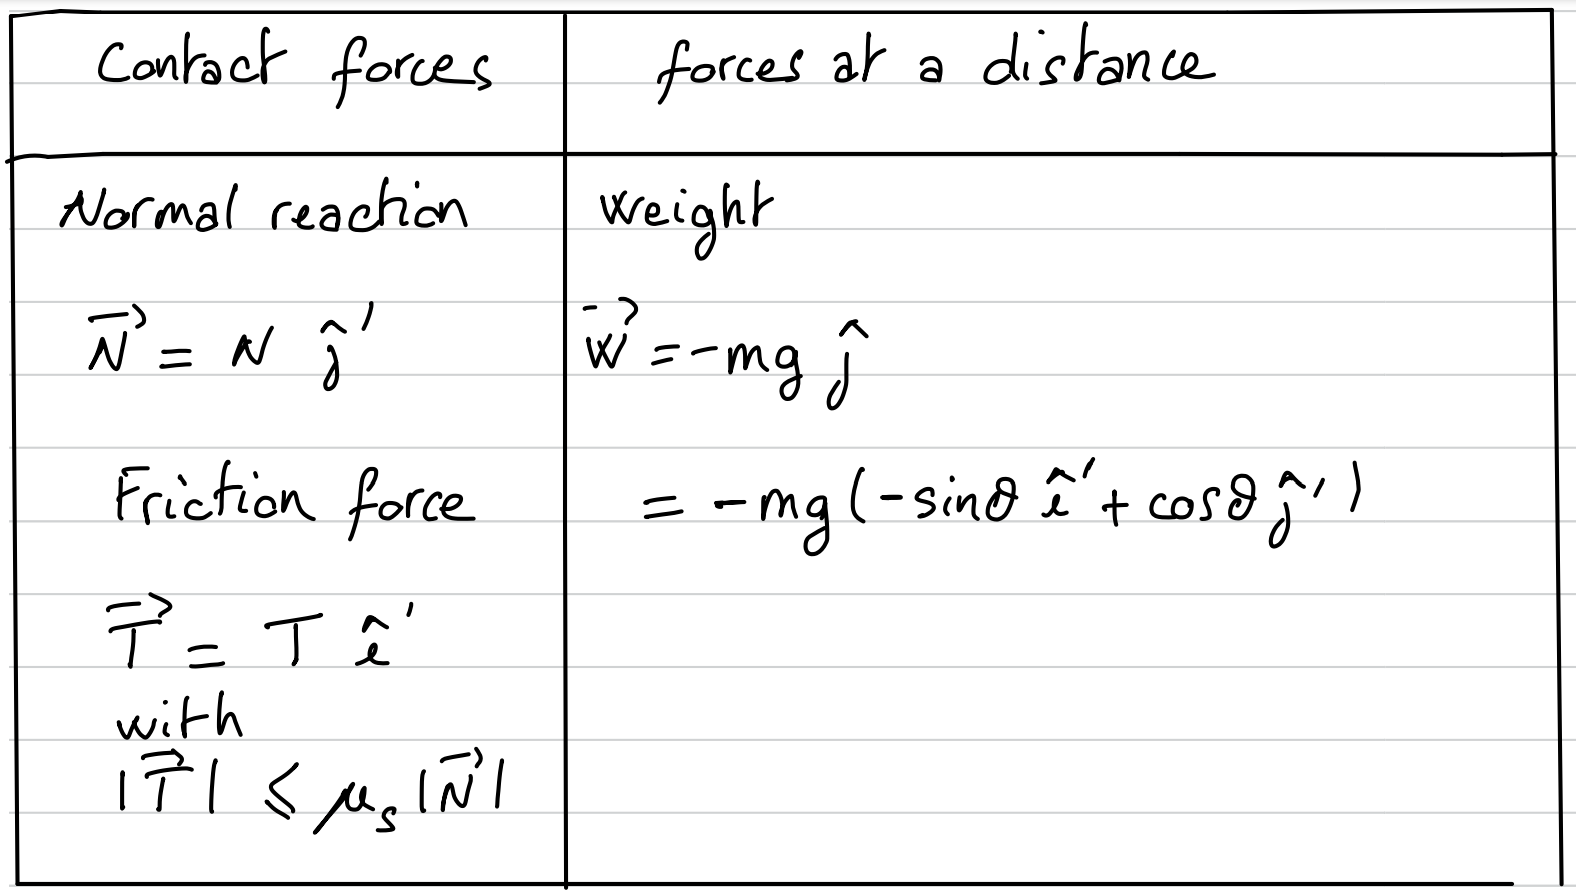 Contact forces
forces at a distance
Normal reaction
N⃗ = N ĵ'
Friction force
T⃗ = T î'
with
|T⃗| ⩽ μₛ |N⃗|
weight
W⃗ = -mg ĵ
= -mg (-sinθ î' + cosθ ĵ')